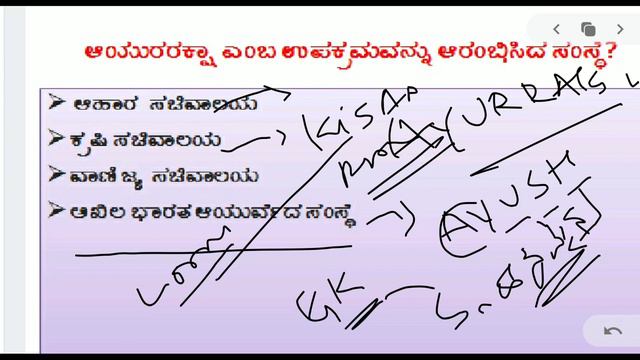 ಆಯುರರಕ್ಷಾ ಎಂಬ ಉಪಕ್ರಮವನ್ನು ಆರಂಭಿಸಿದ ಸಂಸ್ಥೆ?
➢ ಆಹಾರ ಸಚಿವಾಲಯ
➢ ಕೃಷಿ ಸಚಿವಾಲಯ
➢ ವಾಣಿಜ್ಯ ಸಚಿವಾಲಯ
➢ ಅಖಿಲ ಭಾರತ ಆಯುರ್ವೇದ ಸಂಸ್ಥೆ
KISAN
AYUSH
GK